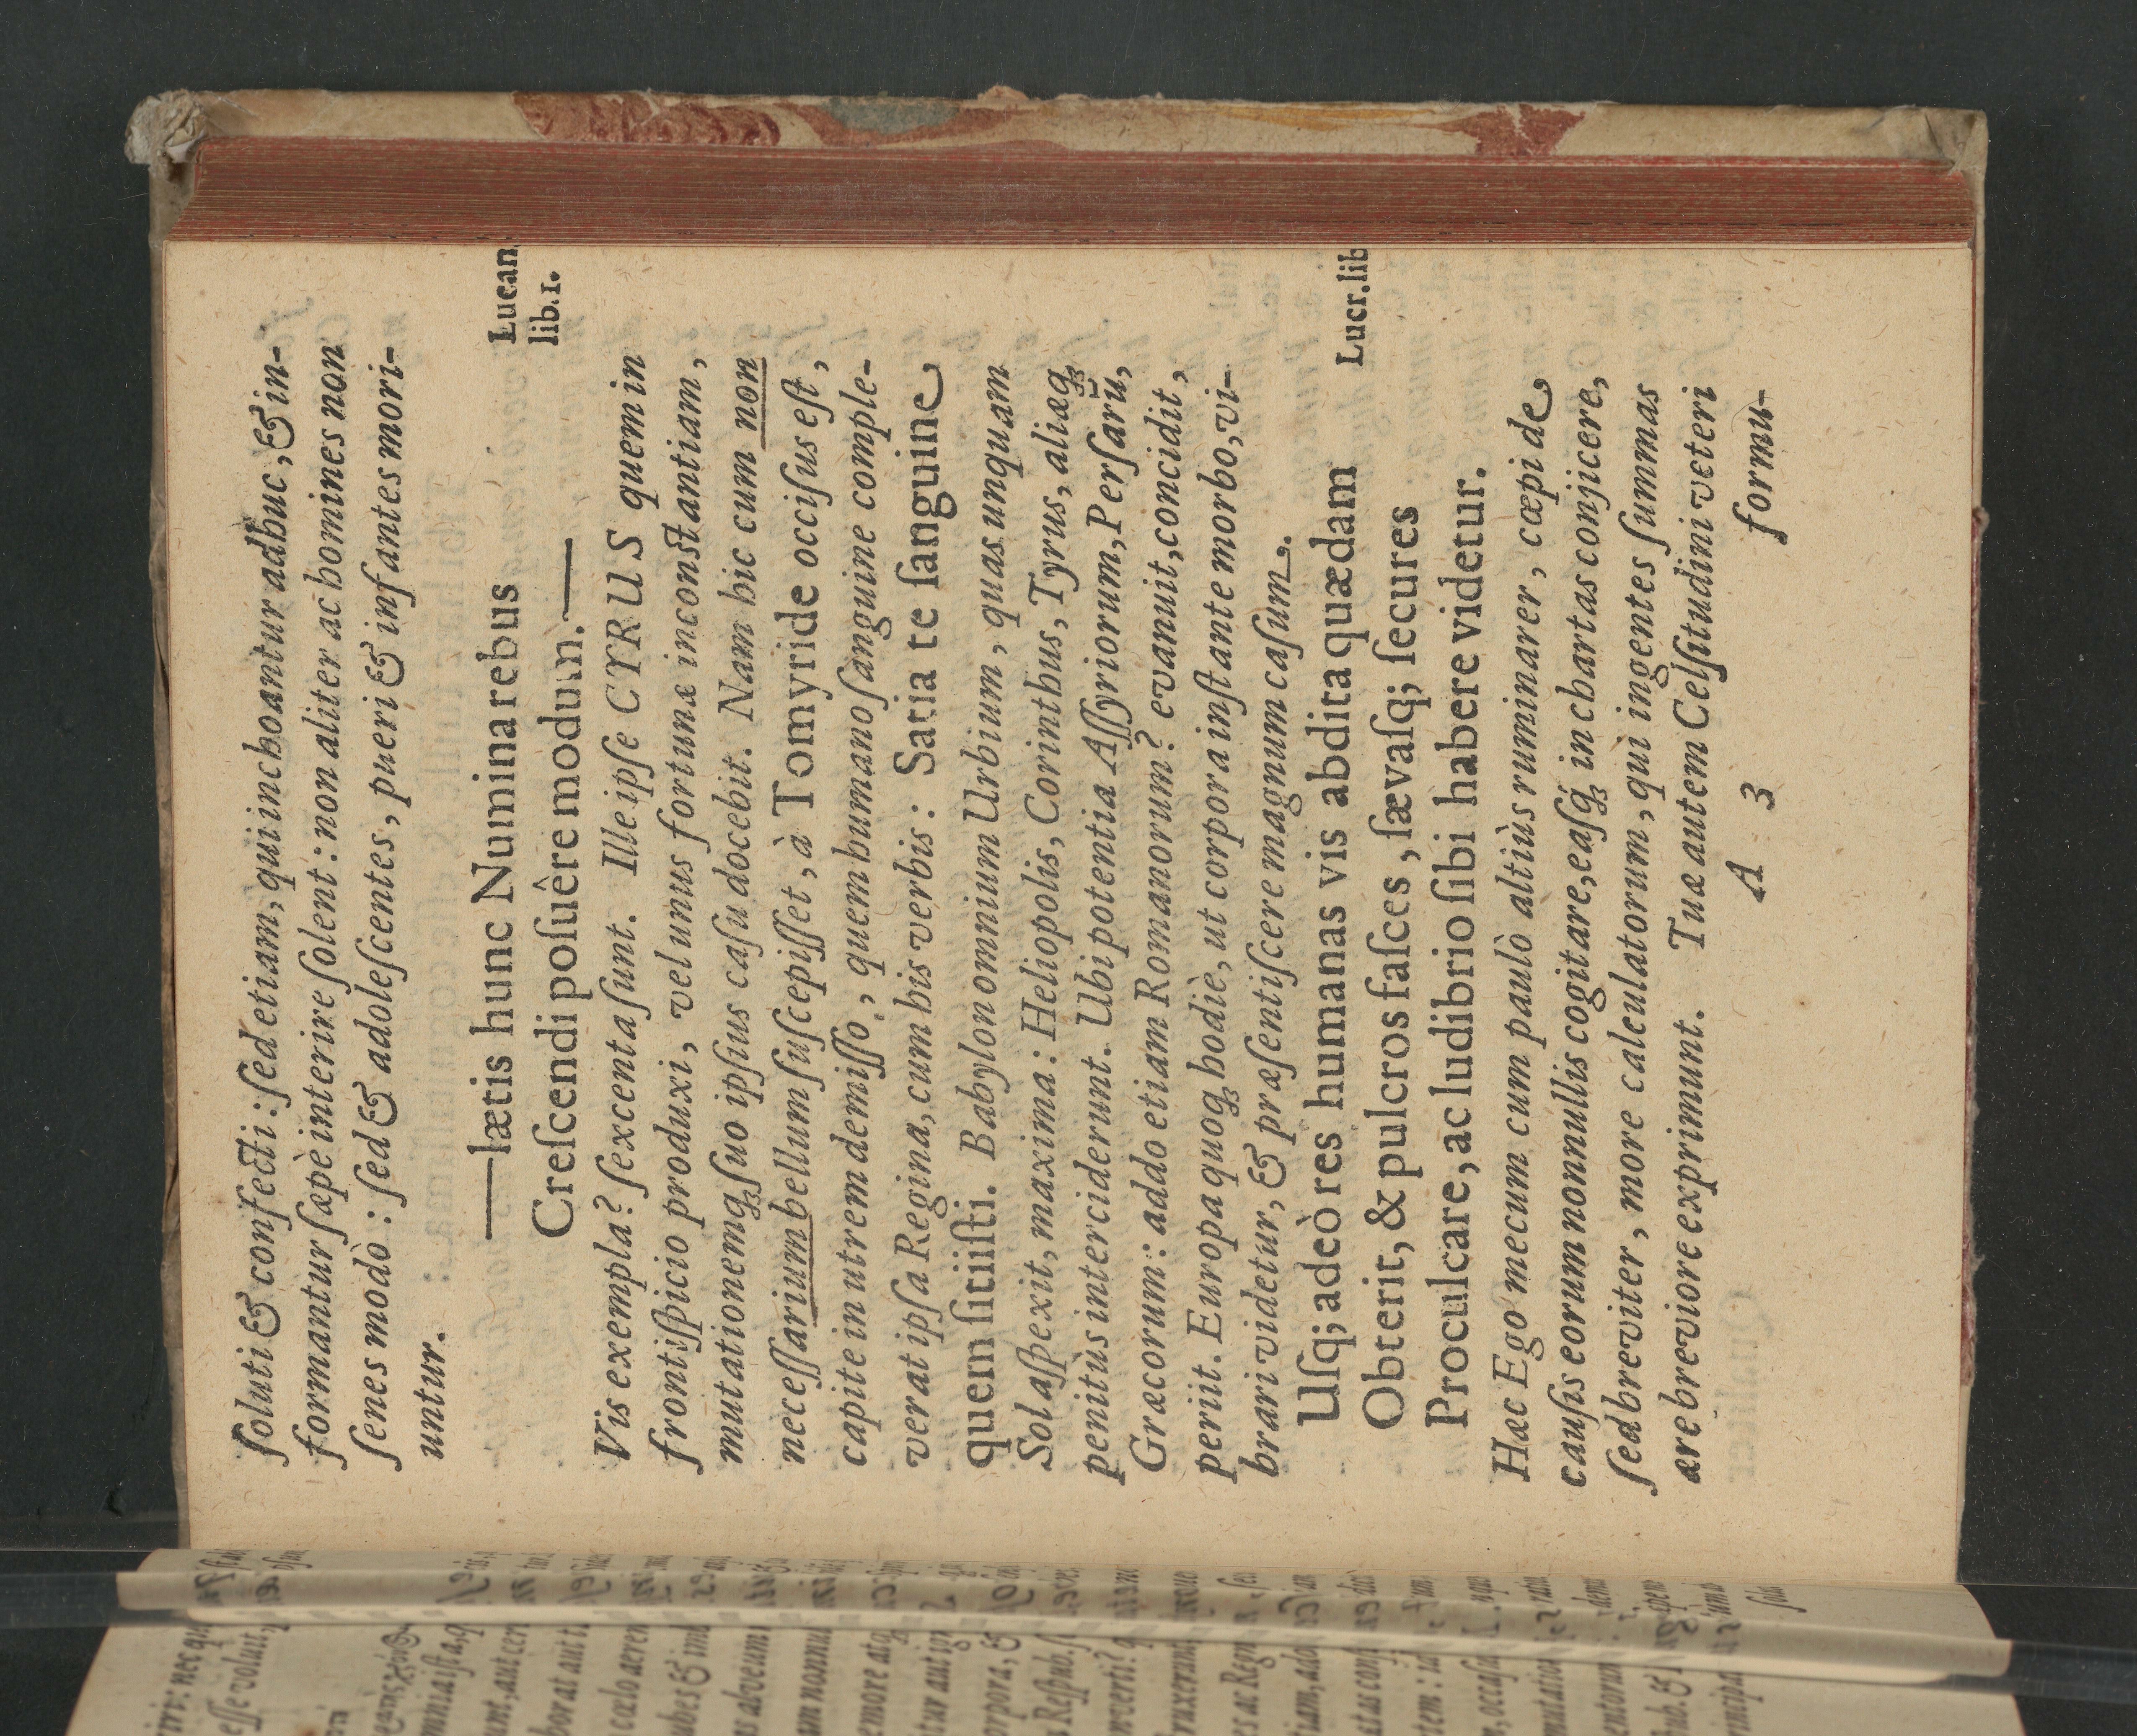 ſoluti & confecti: ſed etiam, qui inchoantur adhuc, & in-
formantur ſæpè interire ſolent: non aliter ac homines non
ſenes modò: ſed & adoleſcentes, pueri & infantes mori-
untur.
—lætis hunc Numina rebus
Creſcendi poſuêre modum.—
Lucan.
lib. 1.
Vis exempla? ſexcenta ſunt. Ille ipſe CYRUS quem in
frontiſpicio produxi, vel unus fortunæ inconſtantiam,
mutationemqꝫ ſuo ipſius caſu docebit. Nam hic cum non
neceſſarium bellum ſuſcepiſſet, à Tomyride occiſus eſt,
capite in utrem demiſſo, quem humano ſanguine comple-
verat ipſa Regina, cum his verbis: Satia te ſanguine,
quem ſitiiſti. Babylon omnium Urbium, quas unquam
Sol aſpexit, maxima: Heliopolis, Corinthus, Tyrus, aliæqꝫ
penitùs interciderunt. Ubi potentia Aſſyriorum, Perſarũ,
Græcorum: addo etiam Romanorum? evanuit, concidit,
periit. Europa quoqꝫ hodiè, ut corpora inſtante morbo, vi-
brari videtur, & præſentiſcere magnum caſum.
Uſq; adeò res humanas vis abdita quædam
Obterit, & pulcros faſces, ſævaſq; ſecures
Proculcare, ac ludibrio ſibi habere videtur.
Lucr. lib
Hæc Ego mecum cum paulò altiùs ruminarer, cœpi de
cauſis eorum nonnullis cogitare, eaſqꝫ in chartas conjicere,
ſed breviter, more calculatorum, qui ingentes ſummas
ære breviore exprimunt. Tuæ autem Celſitudini veteri
A 3
formu-